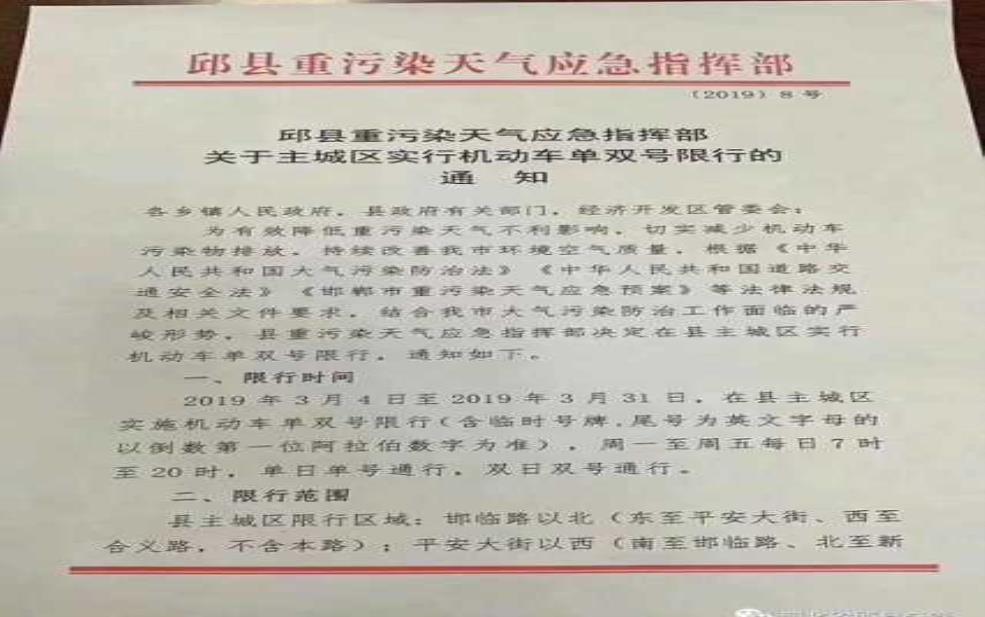 邱县重污染天气应急指挥部
〔2019〕8号
邱县重污染天气应急指挥部
关于主城区实行机动车单双号限行的
通 知
各乡镇人民政府，县政府有关部门，经济开发区管委会：
为有效降低重污染天气不利影响，切实减少机动车
污染物排放，持续改善我市环境空气质量，根据《中华
人民共和国大气污染防治法》《中华人民共和国道路交
通安全法》《邯郸市重污染天气应急预案》等法律法规
及相关文件要求，结合我市大气污染防治工作面临的严
峻形势，县重污染天气应急指挥部决定在县主城区实行
机动车单双号限行，通知如下。
一、限行时间
2019年3月4日至2019年3月31日，在县主城区
实施机动车单双号限行（含临时号牌，尾号为英文字母的
以倒数第一位阿拉伯数字为准），周一至周五每日7时
至20时，单日单号通行，双日双号通行。
二、限行范围
县主城区限行区域：邯临路以北（东至平安大街、西至
合义路，不含本路）；平安大街以西（南至邯临路、北至新